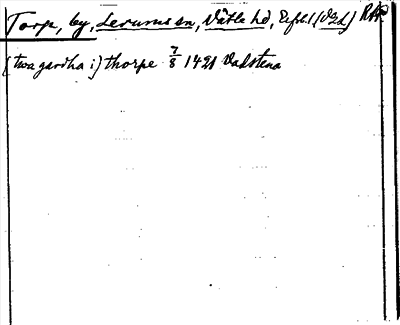 Torp, by, Lerums sn, Vättle hd, Älfsb.l (Vgl.) RAP
(twa gardha i) thorpe 7/8 1421 Vadstena